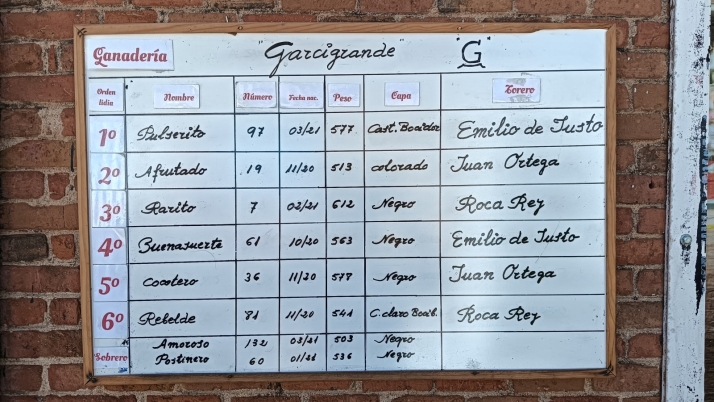 Ganadería "Garcigrande" G
Orden lidia Nombre Número Fecha nac. Peso Capa Torero
1º Pulserito 97 03/21 577 Cast. Bocidor Emilio de Justo
2º Afrutado 19 11/20 513 colorado Juan Ortega
3º Rarito 7 02/21 612 Negro Roca Rey
4º Buenasuerte 61 10/20 563 Negro Emilio de Justo
5º Cocotero 36 11/20 577 Negro Juan Ortega
6º Rebelde 81 11/20 541 C. claro Bocil. Roca Rey
Amoroso 132 03/21 503 Negro
Sobrero Postinero 60 01/21 536 Negro